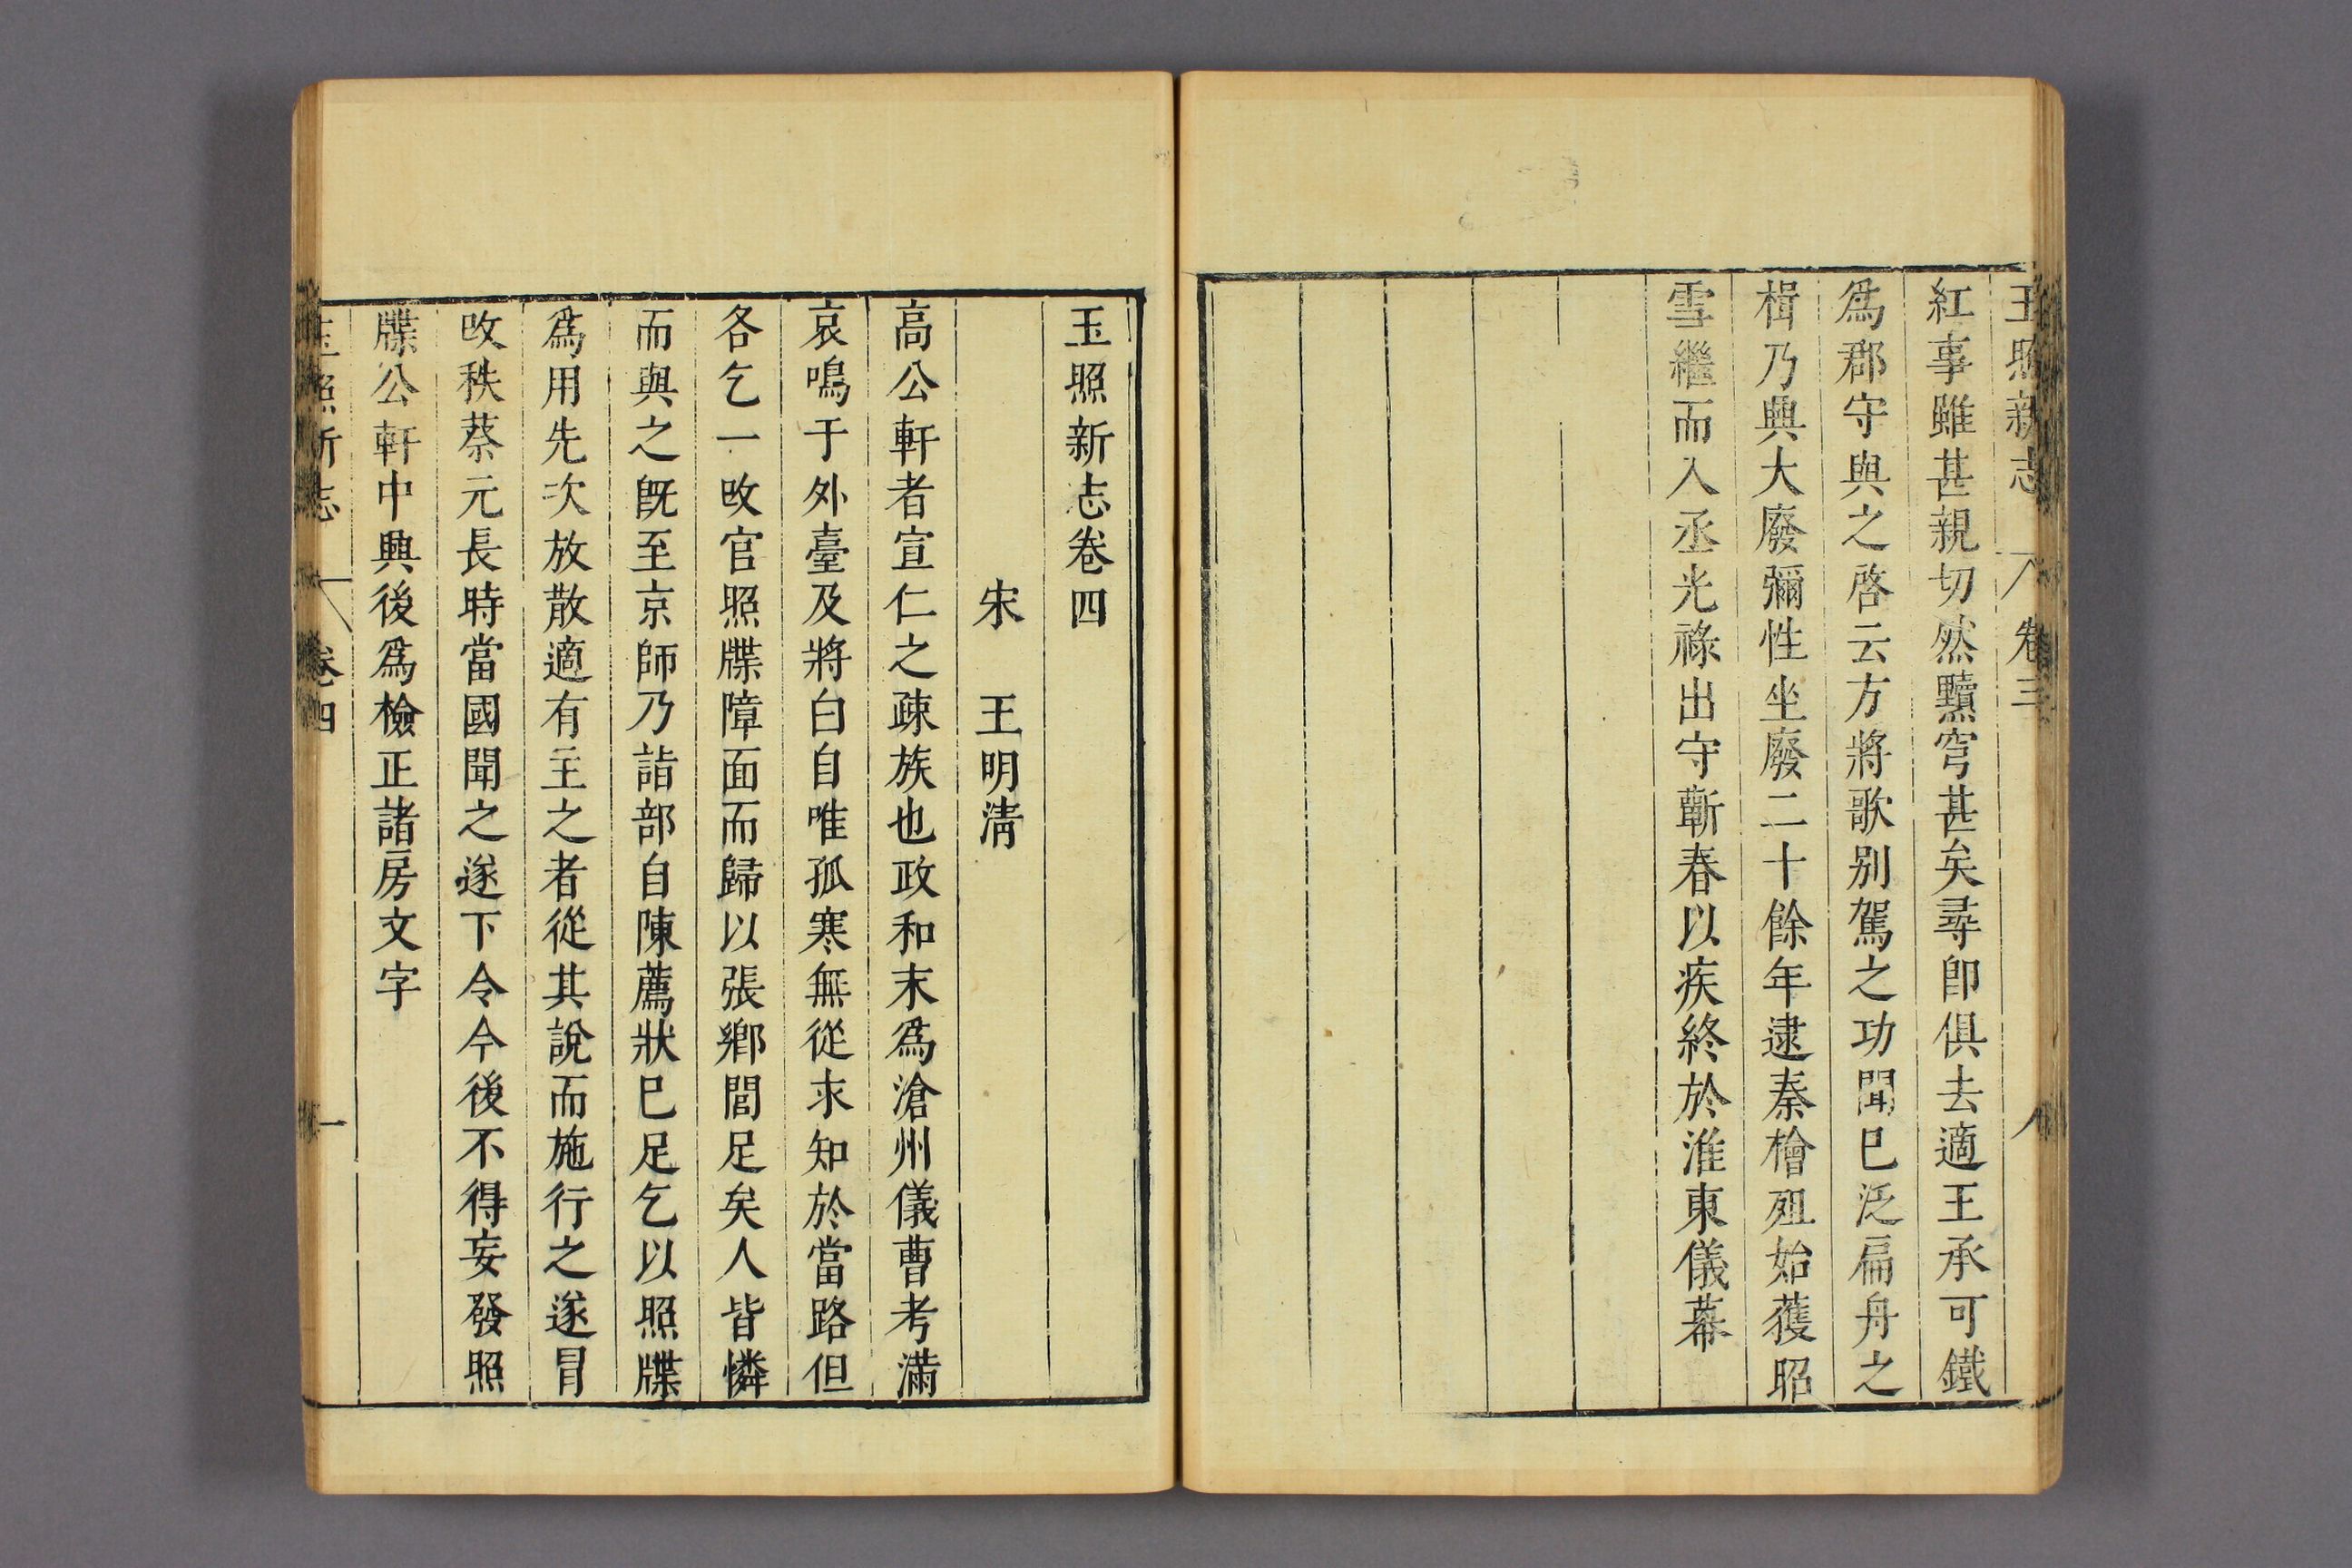 玉照新志 卷三 八
紅事雖甚親切然黷穹甚矣尋卽俱去適王承可鐵
爲郡守與之啓云方將歌别駕之功聞巳泛扁舟之
楫乃興大廢彌性坐廢二十餘年逮秦檜殂始獲昭
雪繼而入丞光祿出守蘄春以疾終於淮東儀幕
玉照新志卷四
宋 王明淸
高公軒者宣仁之疎族也政和末爲滄州儀曹考滿
哀鳴于外臺及將白自唯孤寒無從求知於當路但
各乞一攺官照牒障面而歸以張鄉閭足矣人皆憐
而與之旣至京師乃詣部自陳薦狀巳足乞以照牒
爲用先次放散適有主之者從其說而施行之遂冒
攺秩蔡元長時當國聞之遂下令今後不得妄發照
牒公軒中興後爲檢正諸房文字
玉照新志 卷四 一